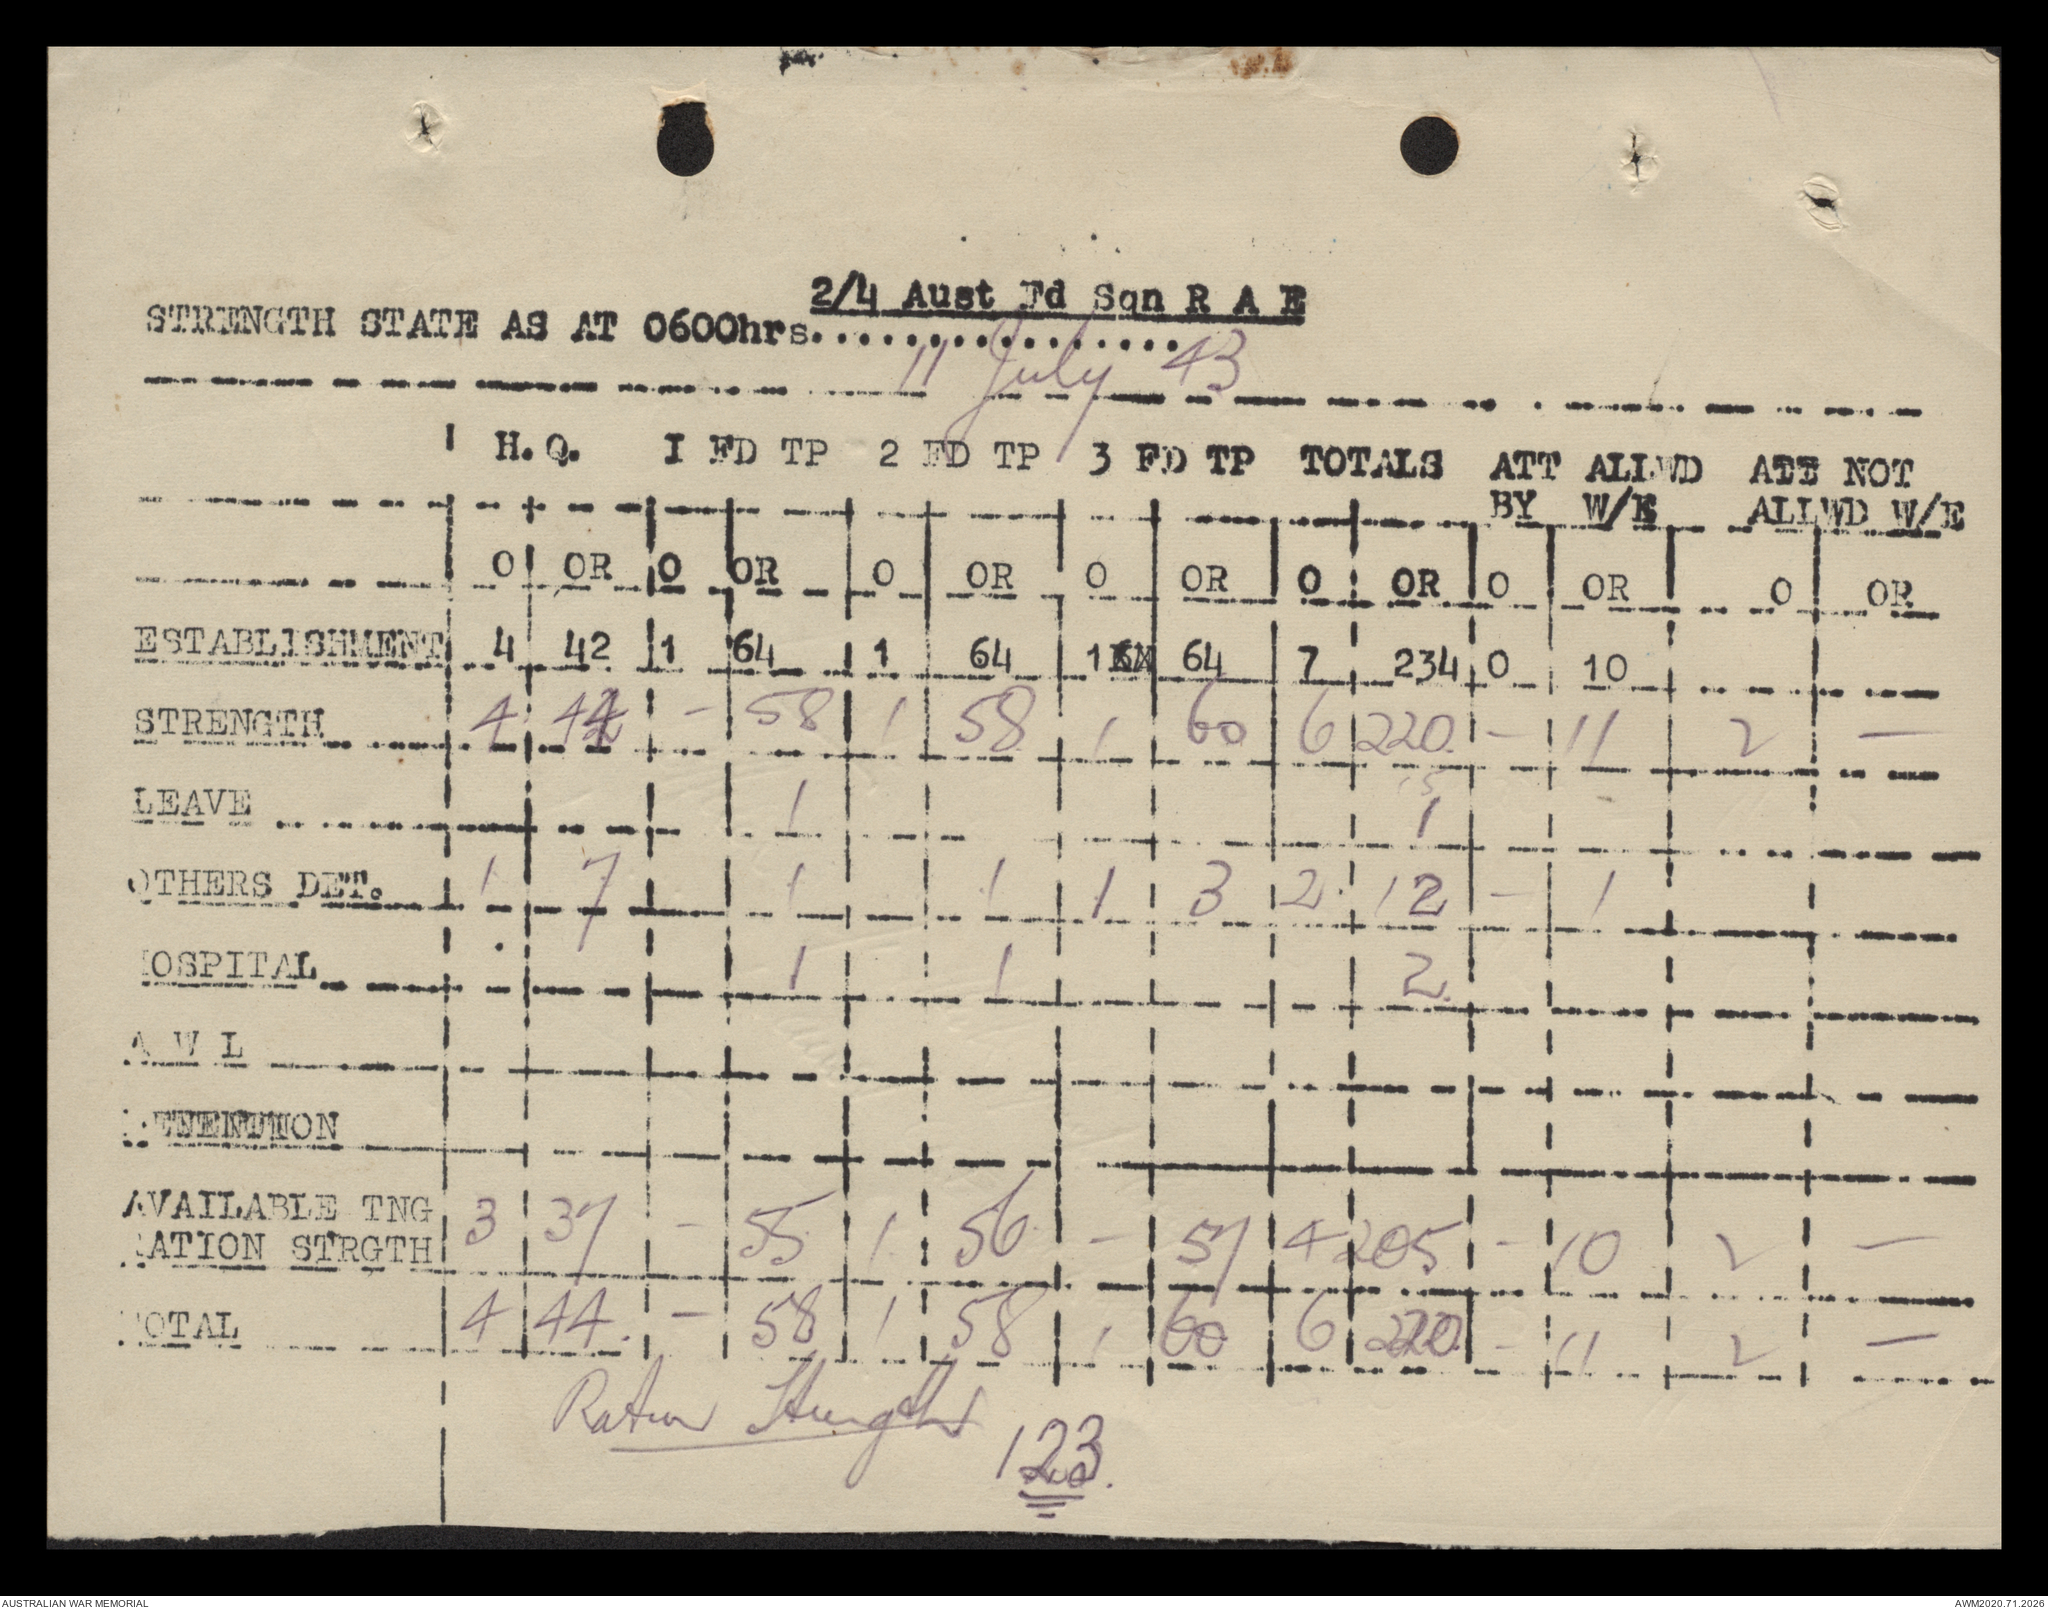 2/4 Aust Fd Sqn R A E
STRENGTH STATE AS AT 0600hrs.................
11 July 43
H.Q. I FD TP 2 FD TP 3 FD TP TOTALS ATT ALLWD ATT NOT
BY W/E ALLWD W/E
O OR O OR O OR O OR O OR O OR O OR
ESTABLISHMENT 4 42 1 64 1 64 1 64 7 234 0 10
STRENGTH 4 44 - 58 1 58 1 60 6 220 - 11 2 -
LEAVE 1 1
OTHERS DET. 1 7 1 1 1 3 2 12 - 1
HOSPITAL 1 1 2
A W L
DETENTION
AVAILABLE TNG 3 37 - 55 1 56 - 57 4 205 - 10 2 -
RATION STRGTH
TOTAL 4 44 - 58 1 58 1 60 6 220 - 11 2 -
Ration Strength
123
AUSTRALIAN WAR MEMORIAL AWM2020.71.2026